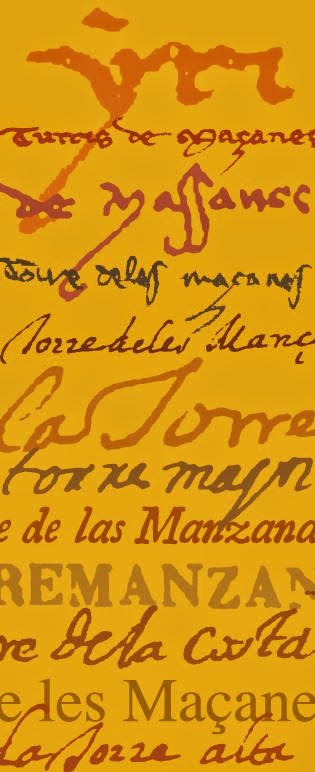 Turris de Maçanes
de Massanes
Torre deles maçanes
Torre de les Manç
la Torre
torre maçan
e de las Manzana
REMANZAN
re de la Ciutd
e les Maçane
la Torre alta